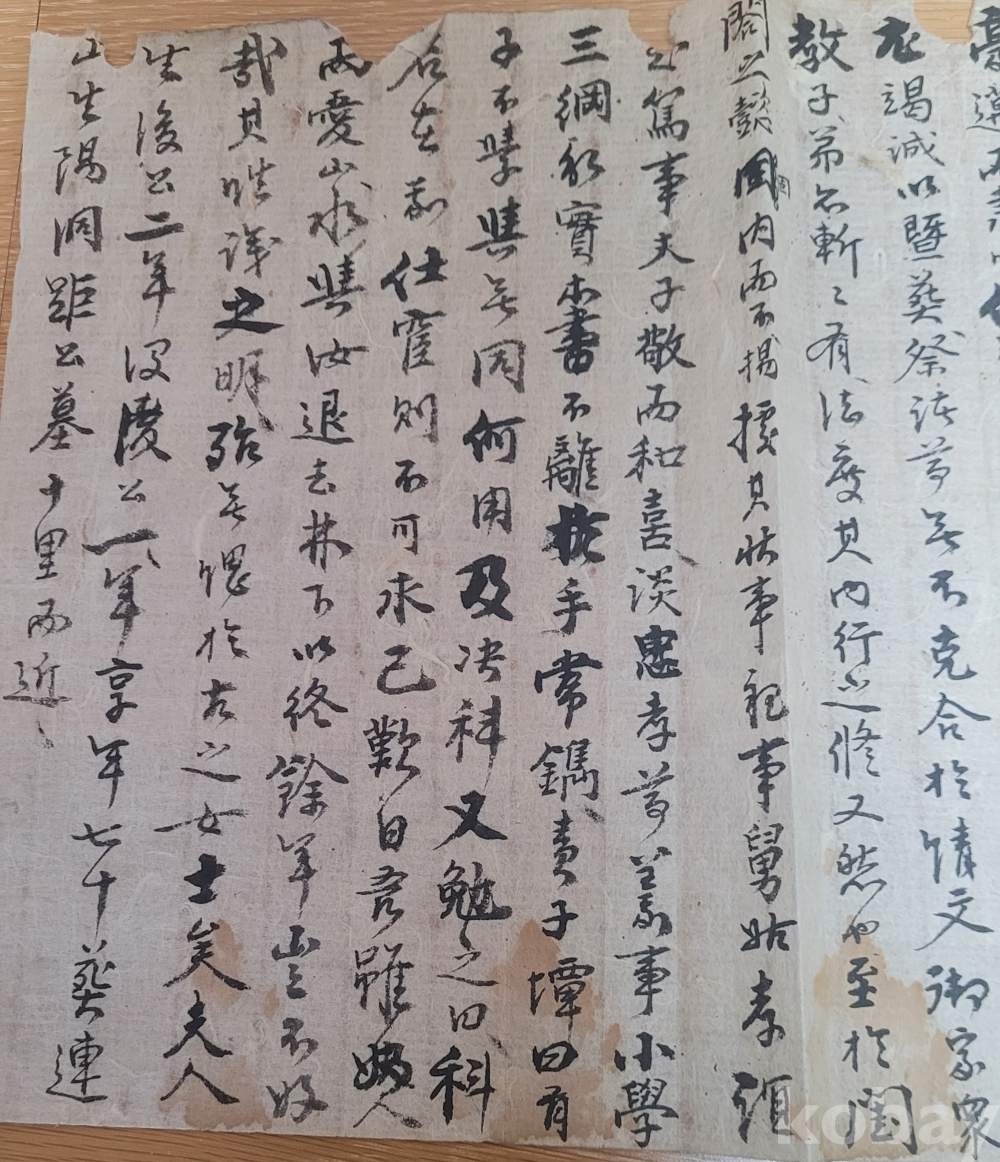 竭誠以曁葬祭諸節無不克合於情文御家衆
教子弟亦斬〻有法度其內行之修又然也至於閨
閤之懿闺內而不揚據其狀事祀事舅姑孝
篤事夫子敬而和喜談忠孝節義事小學
三綱行實等書不離於手常鐫責子墰曰有
子不學與無同何用及决科又勉之曰科
名在前仕宦則不可求已歎曰吾雖婦人
而愛山水與汝退去林下以終餘年豈不好
哉其性識之明殆無愧於古之女士矣夫人
生後公二年沒後公一年享年七十葬連
山生陽洞距公墓十里而近
koba